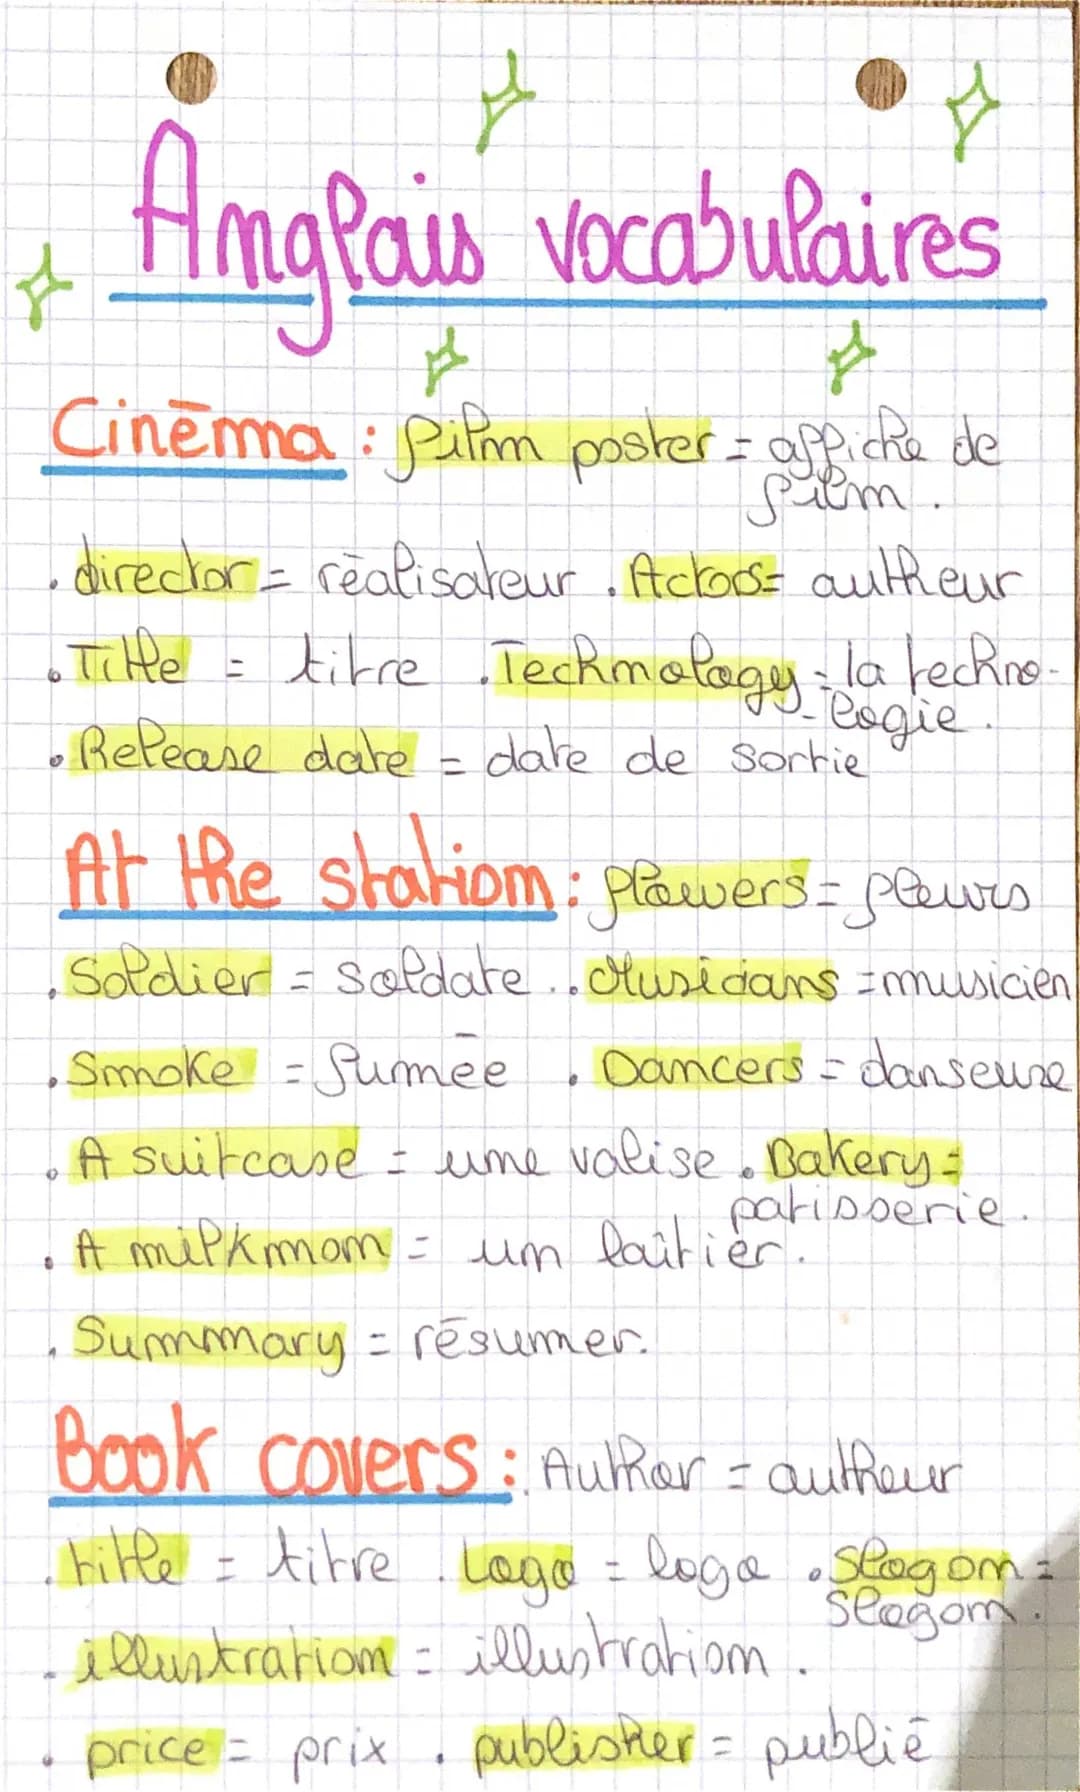 Anglais vocabulaires
Cinéma : film poster = affiche de
film.
. director = réalisateur . Actors = autheur
. Title = titre . Technology = la techno-
-logie.
. Release date = date de sortie
At the station : flowers = fleurs
. Soldier = soldate . . Musicians = musicien
. Smoke = fumée . Dancers = danseuse
. A suitcase = une valise . Bakery =
patisserie.
. A milkman = un laîtier.
. Summary = résumer.
Book covers : . Author = autheur
. title = titre . Logo = logo . Slogan =
slogan.
- illustration = illustration .
. price = prix . publisher = publié